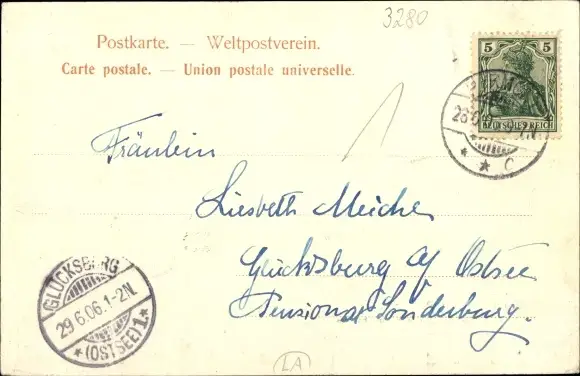 3280
Postkarte. — Weltpostverein.
Carte postale. — Union postale universelle.
5 5
DEUTSCHES REICH
28.6
* * C
Fräulein
Liesbeth Meiche
Glücksburg a/ Ostsee
Pensionat Sonderburg.
GLÜCKSBURG
29.6.06.1-2N.
* (OSTSEE) 1. *
LA